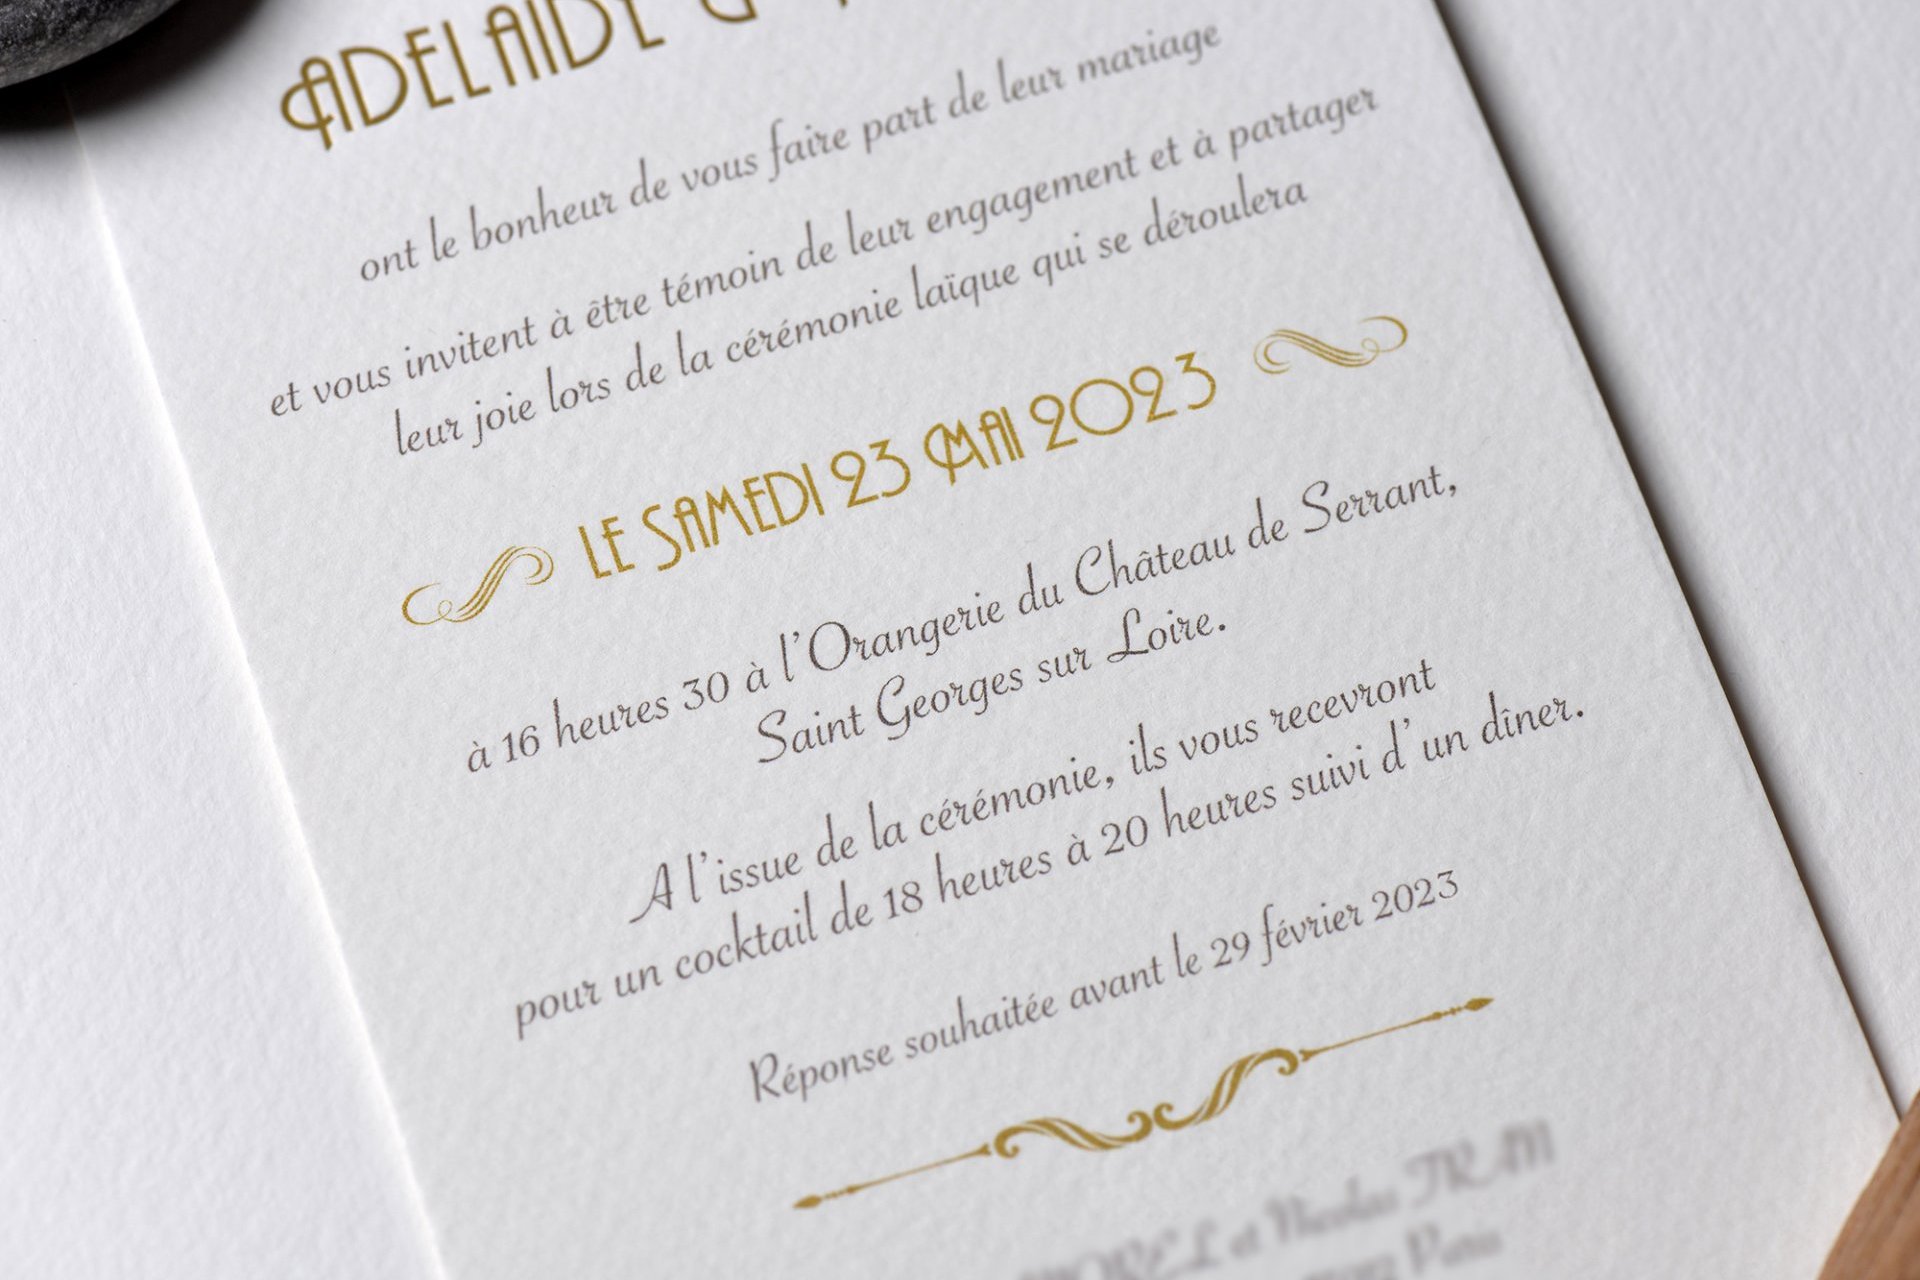 ADELAIDE &
ont le bonheur de vous faire part de leur mariage
et vous invitent à être témoin de leur engagement et à partager
leur joie lors de la cérémonie laïque qui se déroulera
LE SAMEDI 23 MAI 2023
à 16 heures 30 à l'Orangerie du Château de Serrant,
Saint Georges sur Loire.
A l'issue de la cérémonie, ils vous recevront
pour un cocktail de 18 heures à 20 heures suivi d'un dîner.
Réponse souhaitée avant le 29 février 2023
et Nicolas TRAN
Paris